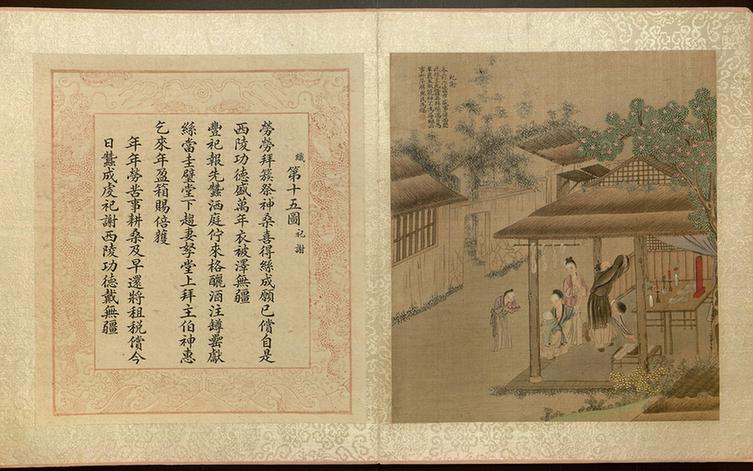 祀謝
織 第十五圖 祀謝
勞勞拜簇祭神桑喜得絲成願已償自是
西陵功德盛萬年衣被澤無疆
豐祀報先蠶洒庭佇來格釃酒注罇罍獻
絲當圭璧堂下趨妻孥堂上拜主伯神惠
乞來年盈箱賜倍獲
年年勞苦事耕桑及早還將租稅償今
日蠶成虔祀謝西陵功德戴無疆